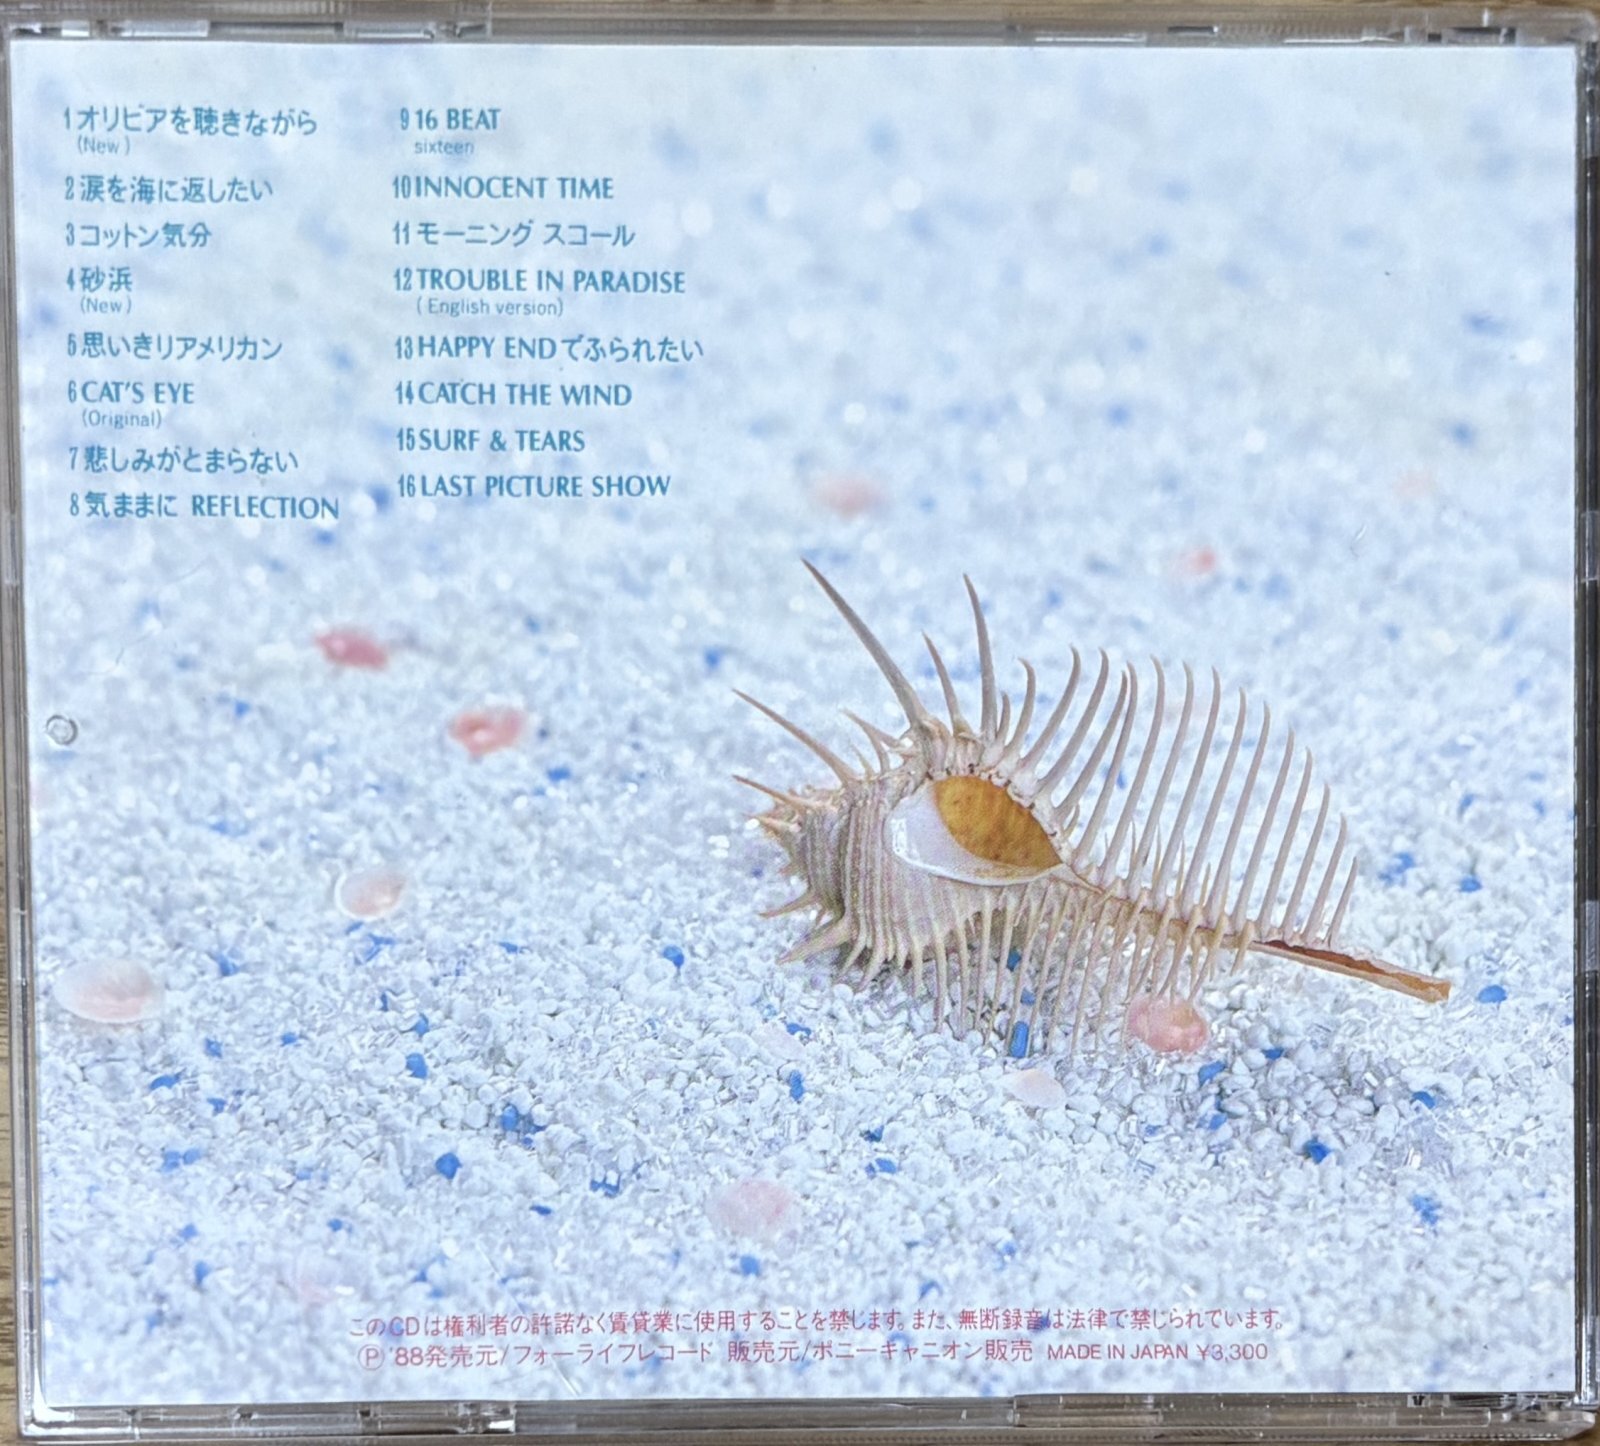 1 オリビアを聴きながら
(New)
2 涙を海に返したい
3 コットン気分
4 砂浜
(New)
5 思いきりアメリカン
6 CAT'S EYE
(Original)
7 悲しみがとまらない
8 気ままに REFLECTION
9 16 BEAT
sixteen
10 INNOCENT TIME
11 モーニング スコール
12 TROUBLE IN PARADISE
(English version)
13 HAPPY ENDでふられたい
14 CATCH THE WIND
15 SURF & TEARS
16 LAST PICTURE SHOW
このCDは権利者の許諾なく賃貸業に使用することを禁じます。また、無断録音は法律で禁じられています。
Ⓟ '88発売元/フォーライフレコード 販売元/ポニーキャニオン販売 MADE IN JAPAN ¥3,300